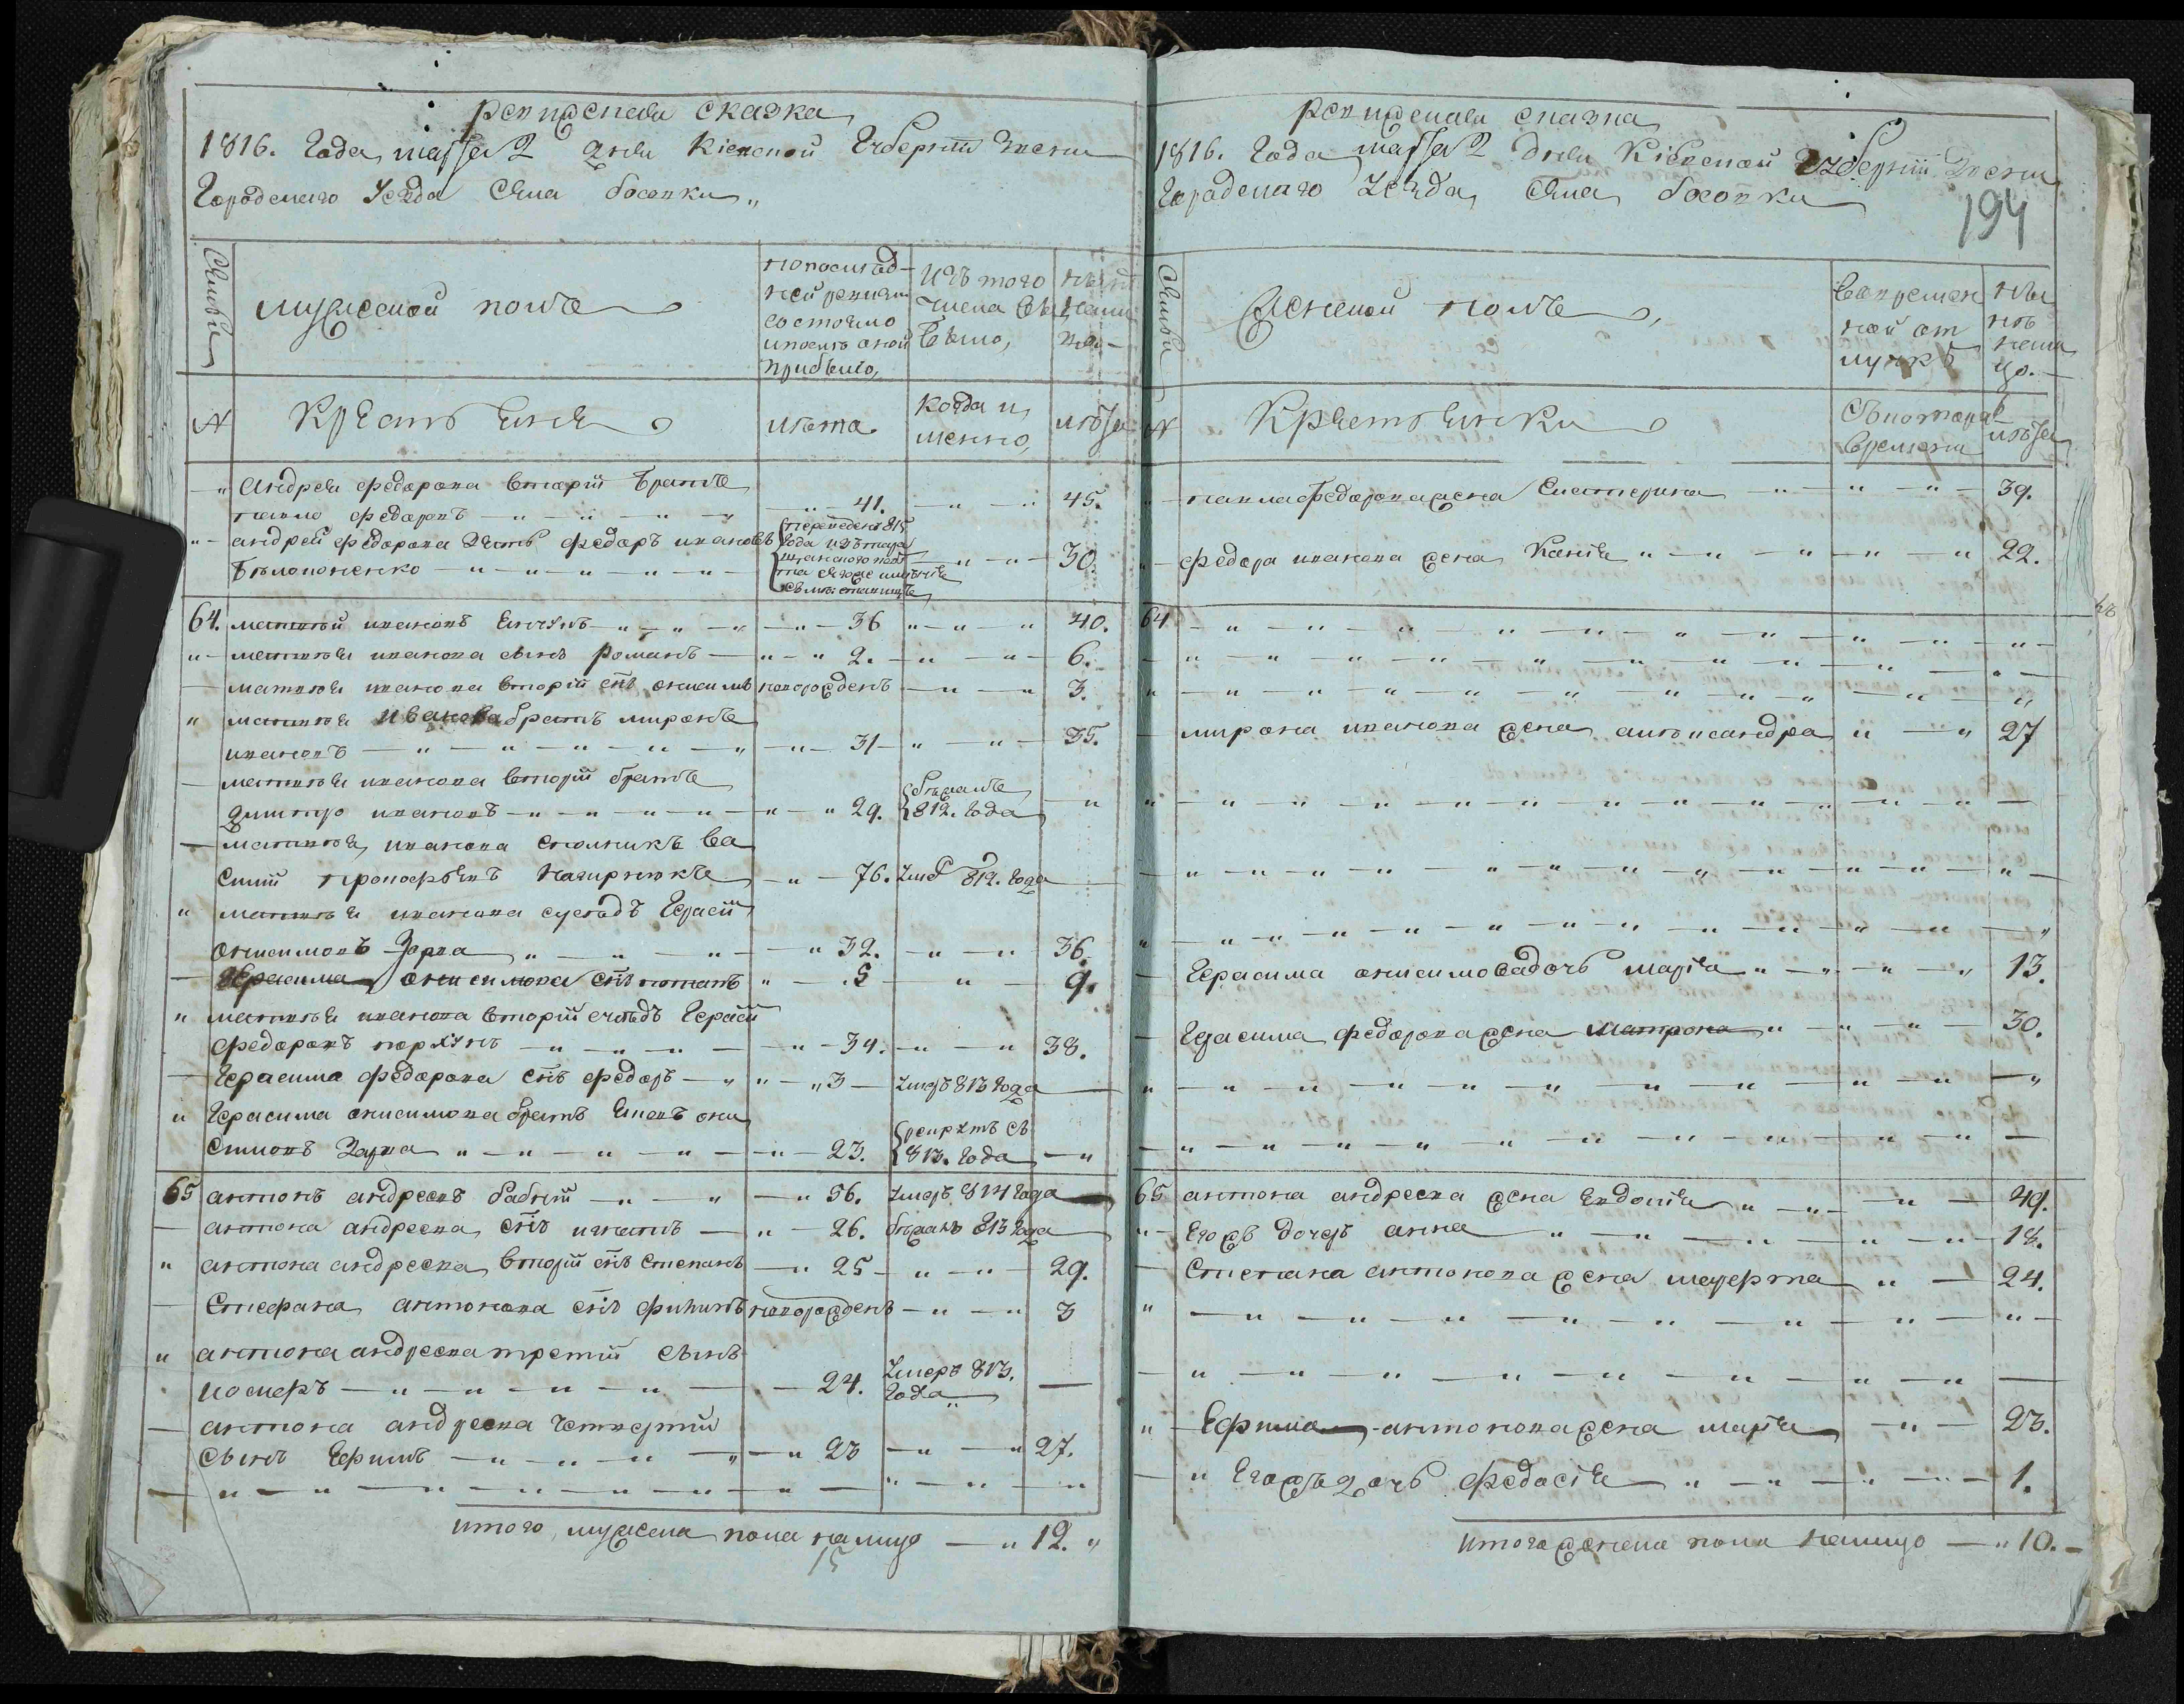 ревижская сказка
1816. Года, марта 2 дня Кіевской Губерніи Звени
Городскаго Уезда Села босовки„
Семьи
мужеской полъ
по последней ревизіи состояло и после оной прибыло,
Изъ того числа выбыло,
ныне на лицо
№
Крестьяне
лета
когда именно,
лета
Андрея федорова вторій братъ
павло федоровъ 41. 45.
андрей федорова зять федоръ ивановъ
Белоконенко 30.
64. матвей ивановъ 36 40.
матвея иванова сынъ романъ 2. 6.
матвея иванова вторій снъ онисимъ новорожденъ 3.
матвея Иванова братъ миронъ
ивановъ 31 35.
матвея иванова вторій братъ
дмитро ивановъ 29. бежалъ 812. года
матвея, иванова Ва
силій прокофіевъ 76. умер 812. года
матвея иванова суседъ Герасй
онисимовъ Зарва 32. 36.
Герасима онисимова снъ потапъ 5 9.
матвея иванова вторій суседъ Герасй
федоровъ 34. 38.
Герасима федорова снъ федоръ 3 умеръ 813 года
Герасима онисимова братъ они
симовъ Зарва 23. рекрутъ съ 813. года
65 антонъ андреевъ бабій 56. умеръ 814 года
антона андреева, снъ игнатъ 26. бежалъ 813 года
антона андреева, вторій снъ степанъ 25 29.
Стефана антонова снъ филипъ новорожденъ 3
антона андреева третій сынъ
24. умеръ 813. года
антона андреева четвертій
сынъ Ефимъ 23 27.
итого мужеска пола на лицо 12.
15
ревижская сказка
1816. Года марта 2 дня Кіевской Губерніи Звени
Городскаго уезда, Села босовки
194
Семьи
Женской полъ,
Во временной отлучке
ныне на лицо.
№
Крестьянки
Съ котораго времени
лета
павла федорова жена Екатерина 39.
федора иванова жена Ксенія 22.
64
мирона иванова жена александра 27
Герасима онисимова дочь марія 13.
Герасима федорова жена матрона 30.
65 антона андреева жена Евдокія 49.
Его жъ дочеръ анна 18.
Степана антонова жена 24.
Ефима антонова жена марія 23.
Его жъ дочь федосія 1.
итого женска пола на лицо 10.